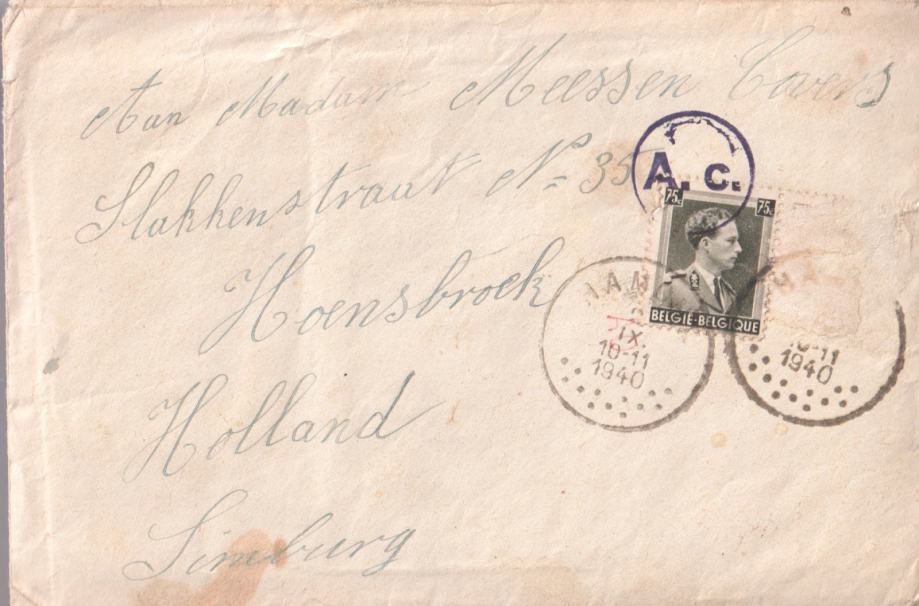 Aan Madam Meessen Covers
Slakkenstraat No 35
A. C.
75c 75c
Hoensbroek
BELGIË-BELGIQUE
IX.
10-11
1940
10-11
1940
Holland
Limburg